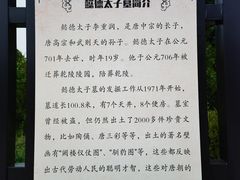 懿德太子墓简介
懿德太子李重润，是唐中宗的长子，
唐高宗和武则天的孙子。懿德太子在公元
701年去世，时年19岁。他于公元706年被
迁葬乾陵陵园，陪葬乾陵。
懿德太子墓的发掘工作从1971年开始，
墓道长100.8米，有7个天井，8个便房。墓室
曾经被盗，但仍然出土了2000多件珍贵文
物，比如陶俑、唐三彩等等，出土的著名壁
画有“阙楼仪仗图”、“驯豹图”等，这些都反映
出古代劳动人民的聪明才智，这些对唐朝的